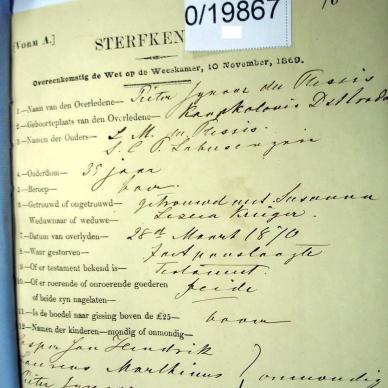 0/19867
[VORM A.]
STERFKEN
Overeenkomstig de Wet op de Weeskamer, 10 November, 1869.
1.—Naam van den Overledene— Pieter Ignaas du Plessis
2.—Geboorteplaats van den Overledene— Kaapkolonie
3.—Namen der Ouders— L. M. du Plessis
S. C. P. Labuscagne
4.—Ouderdom— 35 jaar
5.—Beroep— boer
6.—Getrouwd of ongetrouwd— getrouwd met Susanna
Weduwnaar of weduwe— Kruger.
7.—Datum van overlyden— 28st Maart 1870
8.—Waar gestorven—
9.—Of er testament bekend is— Testament
10.—Of er roerende of onroerende goederen
of beide zyn nagelaten— beide
11.—Is de boedel naar gissing boven de £25— boven
12.—Namen der kinderen—mondig of onmondig—
Jan Hendrik
Marthinus onmondig
Pieter